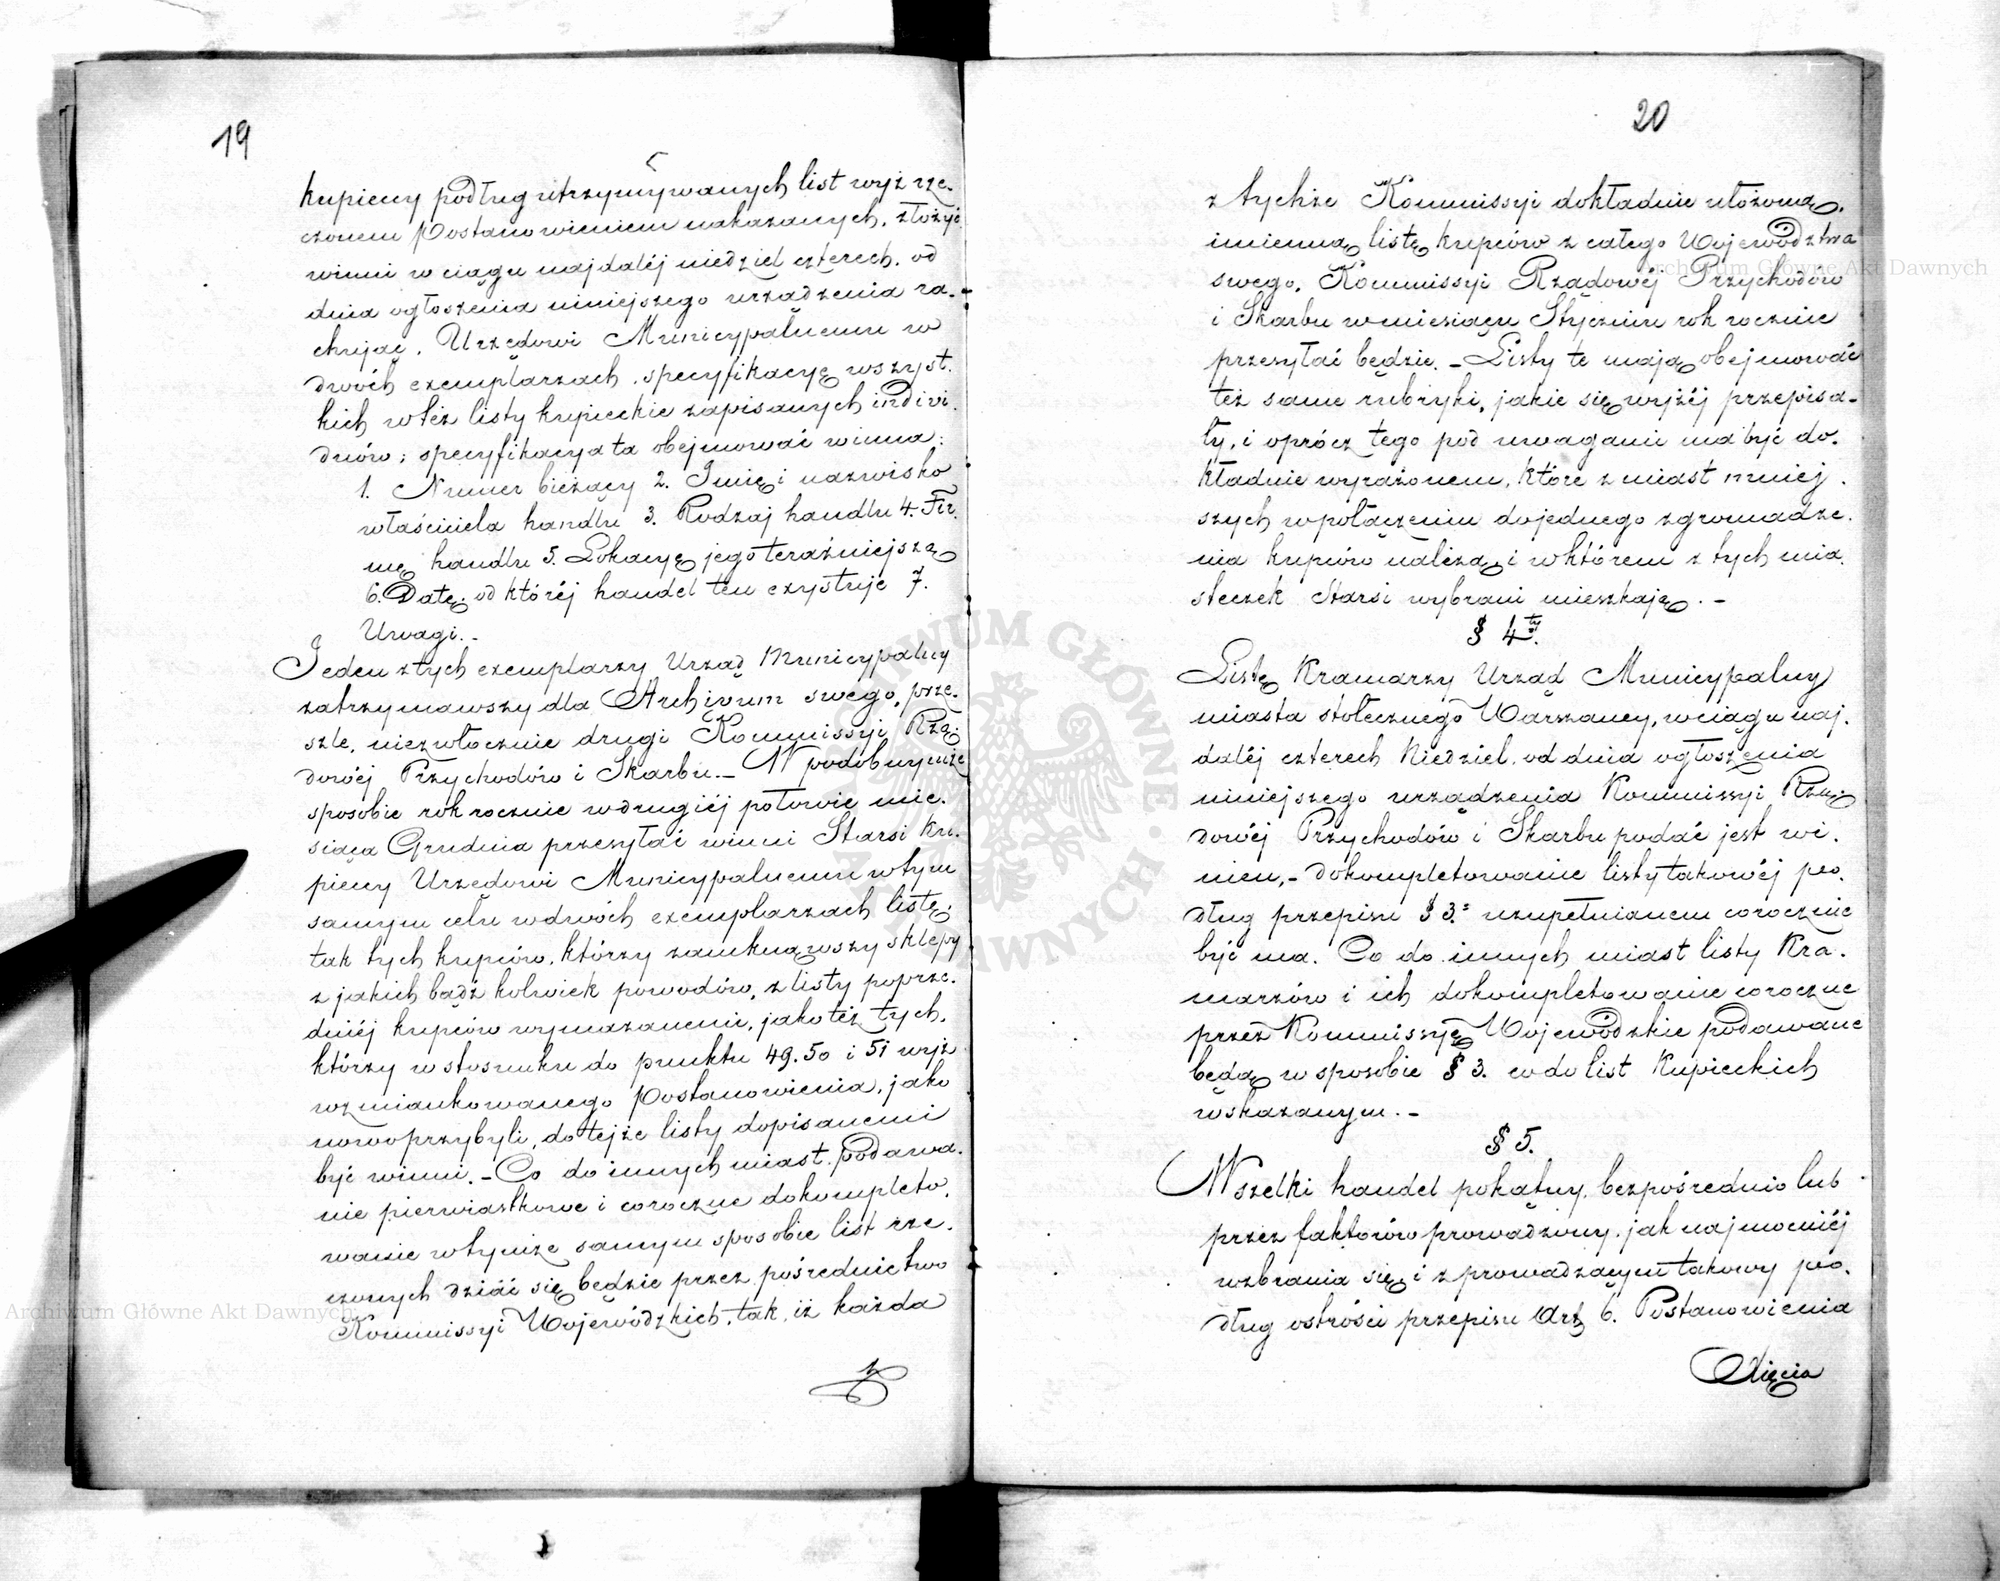 19
kupieccy podług utrzymywanych list wyż rze-
czonem Postanowieniem nakazanych, złożyć
winni w ciągu najdaléj niedziel czterech, od
dnia ogłoszenia niniejszego urządzenia ra-
chując, Urzędowi Municypalnemu w
dwóch exemplarzach, specyfikacyę wszyst-
kich w téż listy kupieckie zapisanych indivi-
duów; specyfikacya ta obejmować winna:
1. Numer bieżący 2. Imię i nazwisko
właściciela handlu 3. Rodzaj handlu 4. Fir-
mę handlu 5. Lokacyę jego teraźniejszą
6. Datę, od któréj handel ten exystuje 7.
Uwagi.-
Jeden z tych exemplarzy Urząd Municypalny
zatrzymawszy dla Archivum swego, prze-
szle, niezwłocznie drugi Kommissyi Rzą-
dowéj Przychodów i Skarbu.- W podobnymże
sposobie rok rocznie w drugiéj połowie mie-
siąca Grudnia przesyłać winni Starsi Ku-
pieccy Urzędowi Municypalnemu w tym
samym celu w dwóch exemplarzach listę,
tak tych kupców, którzy zamknąwszy sklepy
z jakich bądź kolwiek powodów, z listy poprze-
dniéj kupców wymazanemi, jako też tych,
którzy w stosunku do punktu 49. 50 i 51 wyż
wzmiankowanego Postanowienia, jako
nowo przybyli, do tejże listy dopisanemi
być winni.- Co do innych miast, podawa-
nie pierwiastkowe i coroczne dokompleto-
wanie w tymże samym sposobie list rze-
czonych dziać się będzie przez pośrednictwo
Kommissyi Wojewódzkich, tak, iż każda
z
20
z tychże Kommissyi dokładnie ułożoną,
imienną listę kupców z całego Województwa
swego, Kommissyi Rządowéj Przychodów
i Skarbu w miesiącu Styczniu rok rocznie
przesyłać będzie.- Listy te mają obejmować
też same rubryki, jakie się wyżéj przepisa-
ły, i oprócz tego pod uwagami ma być do-
kładnie wyrażonem, które z miast mniej-
szych w połączeniu do jednego zgromadze-
nia kupców należą, i w którem z tych mia-
steczek Starsi wybrani mieszkają.-
§ 4ty.
Listę Kramarzy Urząd Municypalny
miasta stołecznego Warszawy, w ciągu naj-
daléj czterech Niedziel, od dnia ogłoszenia
niniejszego urządzenia Kommissyi Rzą-
dowéj Przychodów i Skarbu podać jest wi-
nien.- Dokompletowanie listy takowéj po-
dług przepisu § 3. uzupełnianem corocznie
być ma. Co do innych miast listy Kra-
marzów i ich dokompletowanie coroczne
przez Kommissyę Wojewódzkie podawane
będą w sposobie § 3. co do list Kupieckich
wskazanym.-
§ 5.
Wszelki handel pokątny, bezpośrednio lub
przez faktorów prowadzony, jak najmocniéj
wzbrania się i z prowadzącym takowy po-
dług ostrości przepisu Art 6. Postanowienia
Xięcia
Archiwum Główne Akt Dawnych
Archiwum Główne Akt Dawnych
ARCHIWUM GŁÓWNE AKT DAWNYCH